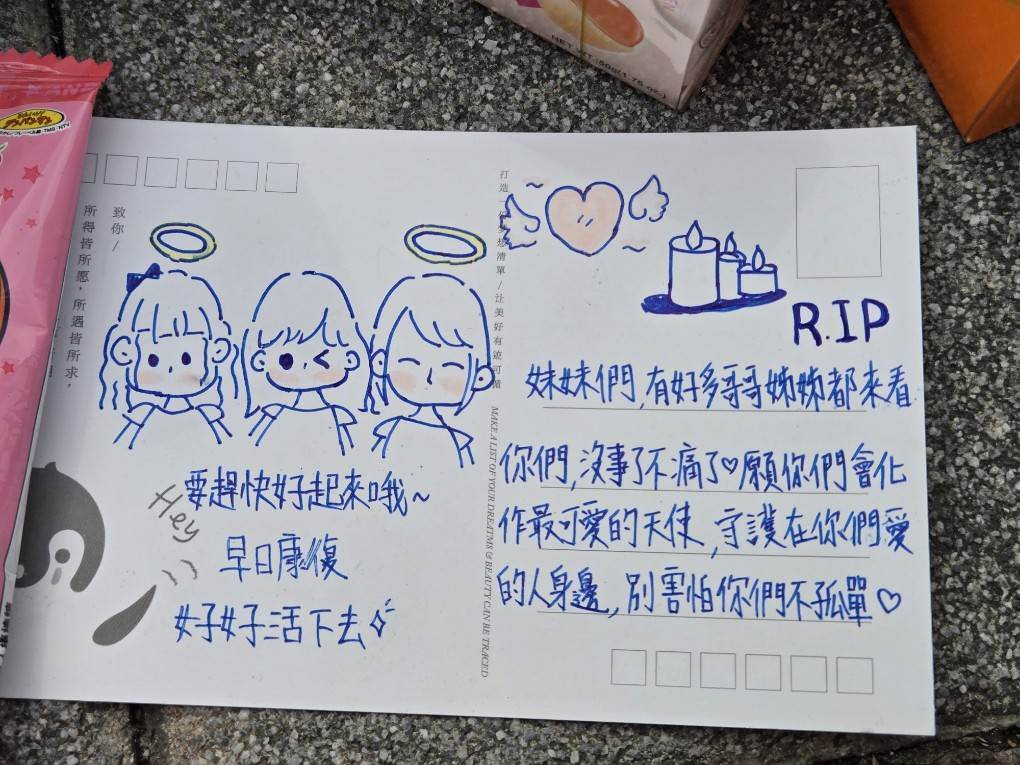 NET WT. 50g(1.76 oz.)
アンパンマン
致你/
所得皆所愿，所遇皆所求，
要趕快好起來哦~
Hey
早日康復
好好活下去
MAKE A LIST OF YOUR DREATMS & BEAUTY CAN BE TRACED
R.I.P
妹妹們,有好多哥哥姊姊都來看
你們,沒事了不痛了♡願你們會化
作最可愛的天使,守護在你們愛
的人身邊,別害怕你們不孤單♡